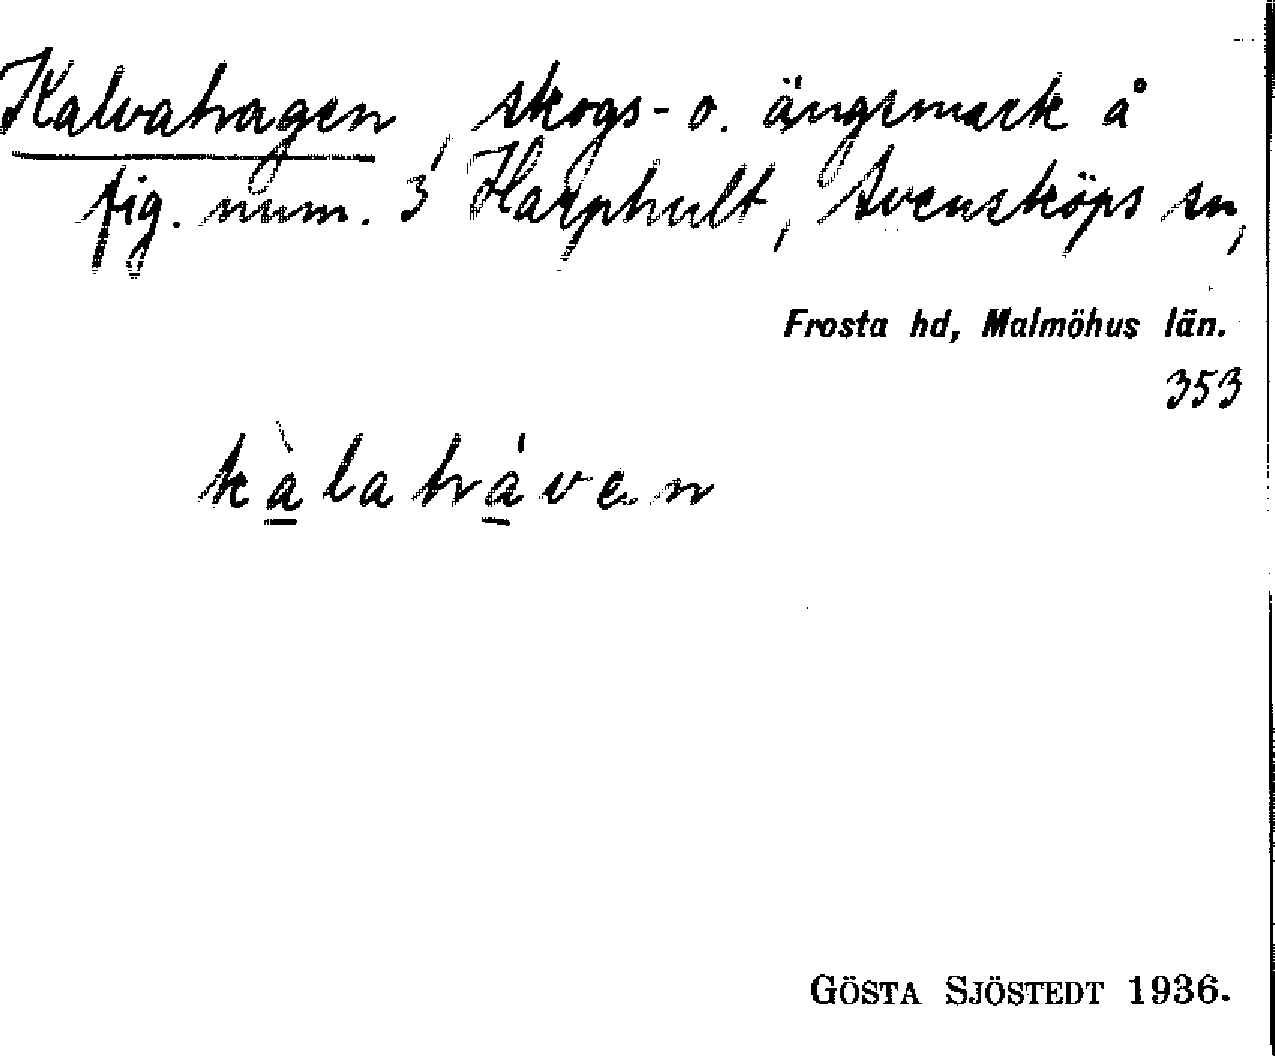 Kalvahagen, skogs- o. ängsmark å
fig. num. 3 Harphult, Svensköps sn,
Frosta hd, Malmöhus län.
353
kàlaháven
GÖSTA SJÖSTEDT 1936.